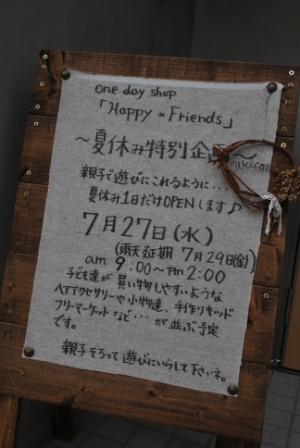 one day shop
「Happy * Friends」
～夏休み特別企画～
Welcome
親子で遊びにこれるように・・・
夏休み1日だけOPENします♪
7月27日(水)
(雨天延期 7月29日(金))
am 9:00〜pm 2:00
子ども達が買い物しやすいような
ヘアアクセサリーや小物達、手作りキッド
フリーマーケットなど・・・が並ぶ予定
です。
親子そろって遊びにいらして下さいネ。